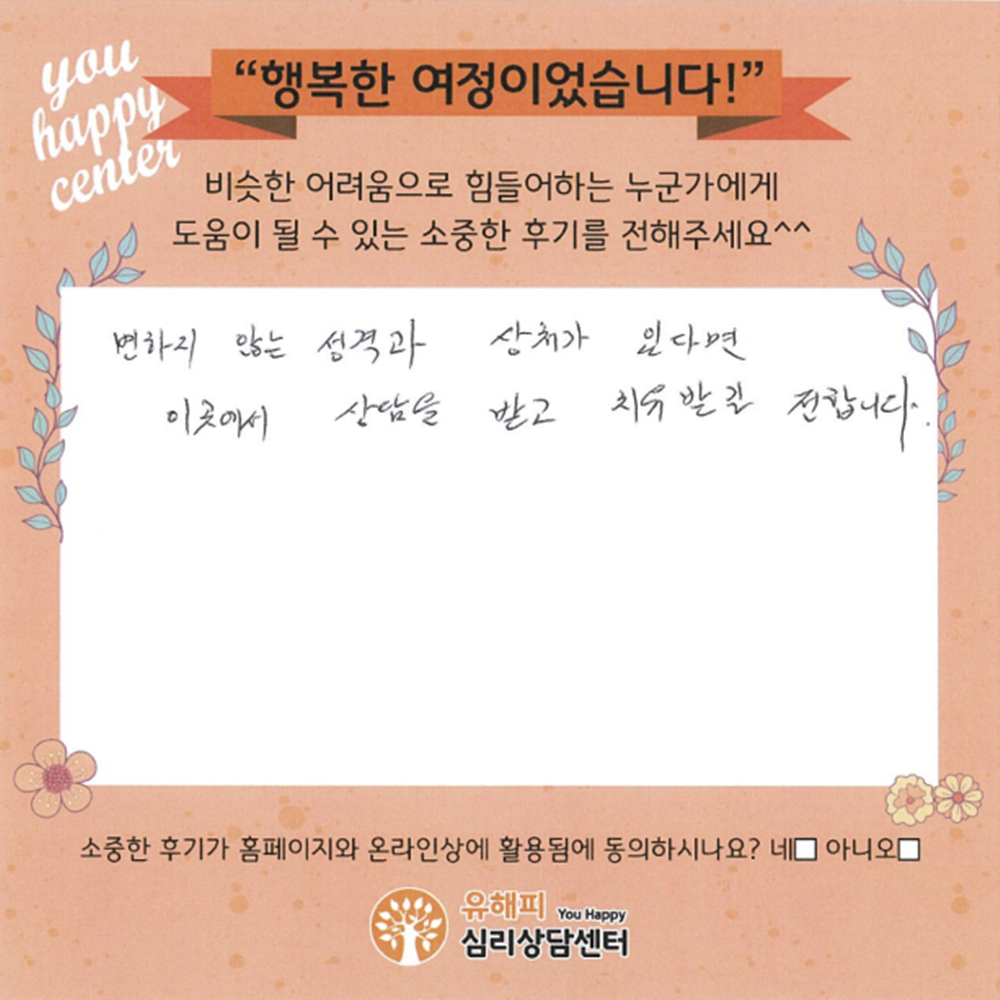 you
happy
center
“행복한 여정이었습니다!”
비슷한 어려움으로 힘들어하는 누군가에게
도움이 될 수 있는 소중한 후기를 전해주세요^^
변하지 않는 성격과 상처가 있다면
이곳에서 상담을 받고 치유 받길 전합니다.
소중한 후기가 홈페이지와 온라인상에 활용됨에 동의하시나요? 네□ 아니오□
유해피 You Happy
심리상담센터